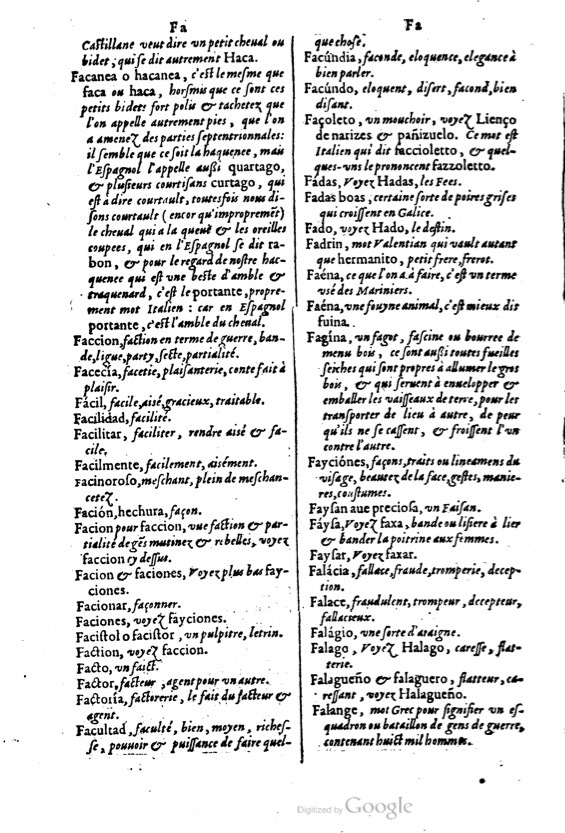 Fa
Castillane veut dire vn petit cheual ou
bidet, qui se dit autrement Haca.
Facanea o hacanea, c'est le mesme que
faca ou haca, horsmis que ce sont ces
petits bidets fort polis & tachetez que
l'on appelle autrement pies, que l'on
a amenez des parties septentrionnales:
il semble que ce soit la haquenee, mais
l'Espagnol l'appelle außi quartago,
& plusieurs courtisans curtago, qui
est à dire courtault, toutesfois nous di-
sons courtault (encor qu'impropremẽt)
le cheual qui a la queuë & les oreilles
coupees, qui en l'Espagnol se dit ra-
bon, & pour le regard de nostre hac-
quenee qui est vne beste d'amble &
traquenard, c'est le portante, propre-
ment mot Italien : car en Espagnol
portante, c'est l'amble du cheual.
Faccion, faction en terme de guerre, ban-
de, ligue, party, secte, partialité.
Facecia, facetie, plaisanterie, conte fait à
plaisir.
Fácil, facile, aisé, gracieux, traitable.
Facilidad, facilité.
Facilitar, faciliter, rendre aisé & fa-
cile.
Facilmente, facilement, aisément.
Facinoroso, meschant, plein de meschan-
cetez.
Fación, hechura, façon.
Facion pour faccion, vne faction & par-
tialité de gẽs mutinez & rebelles, voyez
faccion cy dessus.
Facion & faciones, Voyez plus bas fay-
ciones.
Facionar, façonner.
Faciones, voyez fayciones.
Facistol o facistor, vn pulpitre, letrin.
Faction, voyez faccion.
Facto, vn faict.
Factor, facteur, agent pour vn autre.
Factoria, factorerie, le fait du facteur &
agent.
Facultad, faculté, bien, moyen, riches-
se, pouuoir & puissance de faire quel-
Fa
que chose.
Facúndia, faconde, eloquence, elegance à
bien parler.
Facúndo, eloquent, disert, facond, bien
disant.
Façoleto, vn mouchoir, voyez Lienço
de narizes & pañizuelo. Ce mot est
Italien qui dit faccioletto, & quel-
ques-vns le prononcent fazzoletto.
Fádas, Voyez Hadas, les Fees.
Fadas boas, certaine sorte de poires grises
qui croissent en Galice.
Fado, voyez Hado, le destin.
Fadrin, mot Valentian qui vault autant
que hermanito, petit frere, frerot.
Faéna, ce que l'on a à faire, c'est vn terme
vsé des Mariniers.
Faéna, vne fouyne animal, c'est mieux dit
fuina.
Fagína, vn fagot, fascine ou bourree de
menu bois, ce sont außi toutes fueilles
seiches qui sont propres à allumer le gros
bois, & qui seruent à enuelopper &
emballer les vaisseaux de terre, pour les
transporter de lieu à autre, de peur
qu'ils ne se cassent, & froissent l'vn
contre l'autre.
Fayciónes, façons, traits ou lineamens du
visage, beautez de la face, gestes, manie-
res, coustumes.
Faysan aue preciosa, vn Faisan.
Fáysa, Voyez faxa, bande ou lisiere à lier
& bander la poitrine aux femmes.
Faysar, Voyez faxar.
Falácia, fallace, fraude, tromperie, decep-
tion.
Falace, fraudulent, trompeur, decepteur,
fallacieux.
Falágio, vne sorte d'araigne.
Falago, Voyez Halago, caresse, flat-
terie.
Falagueño & falaguero, flatteur, ca-
ressant, voyez Halagueño.
Falange, mot Grec pour signifier vn es-
quadron ou bataillon de gens de guerre,
contenant huict mil hommes.
Digitized by Google